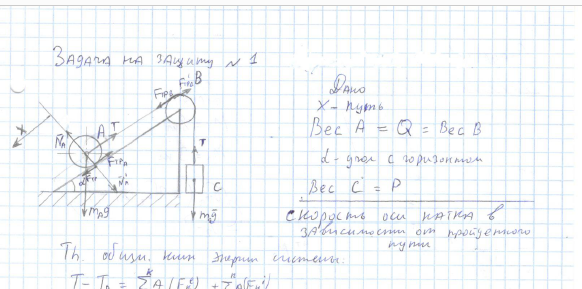 Задача на защиту № 1
Дано
X - путь
Вес A = Q = Вес B
α - угол с горизонтом
Вес C = P
скорость оси катка в
зависимости от пройденного
пути
X
N̄A
A
T
Fтрв
F'трв
B
FтрA
α
N̄A'
mAg
T
C
mḡ
Th. об изм. кин энергии системы:
T - T₀ = ΣA(Fₙᵉ) + ΣA(Fₙⁱ)